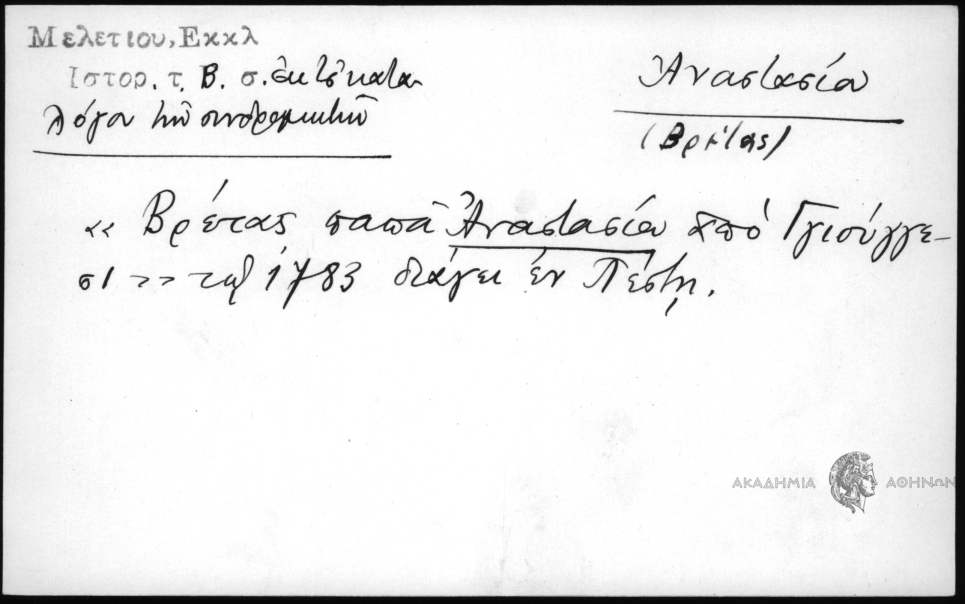 Μελετίου, Εκκλ
Ιστορ. τ. Β. σ. ἐκ τοῦ κατα-
λόγου τῶν συνδρομητῶν
Ἀναστασίου
(Βρέτας)
« Βρέτας παπᾶ Ἀναστασίου ἀπὸ Γγιούγγε-
σι » τῷ 1783 διάγει ἐν Πέστῃ.
ΑΚΑΔΗΜΙΑ ΑΘΗΝΩΝ